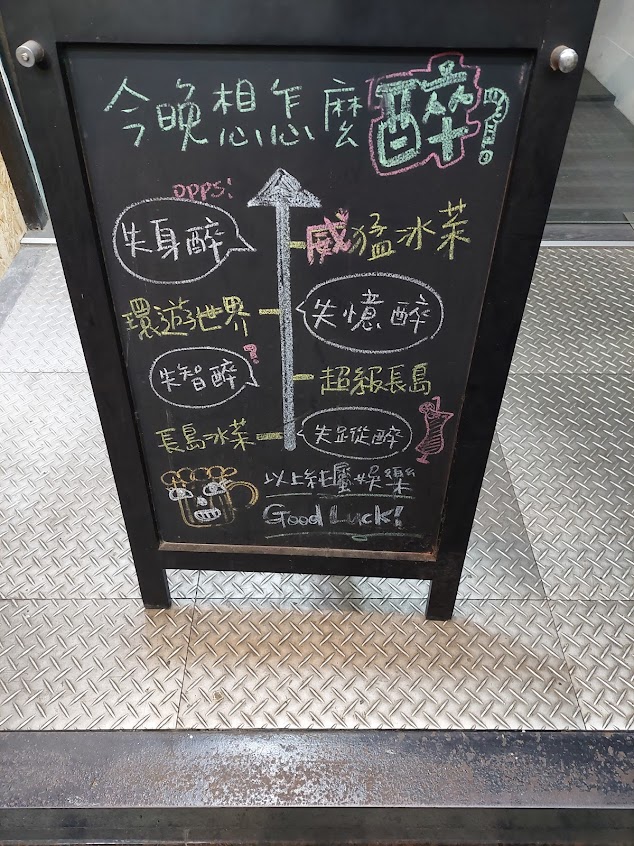 今晚想怎麼醉?
opps!
失身醉
威猛冰茉
環遊世界
失憶醉
失智醉?
超級長島
長島冰茉
失蹤醉
以上純屬娛樂
Good Luck!